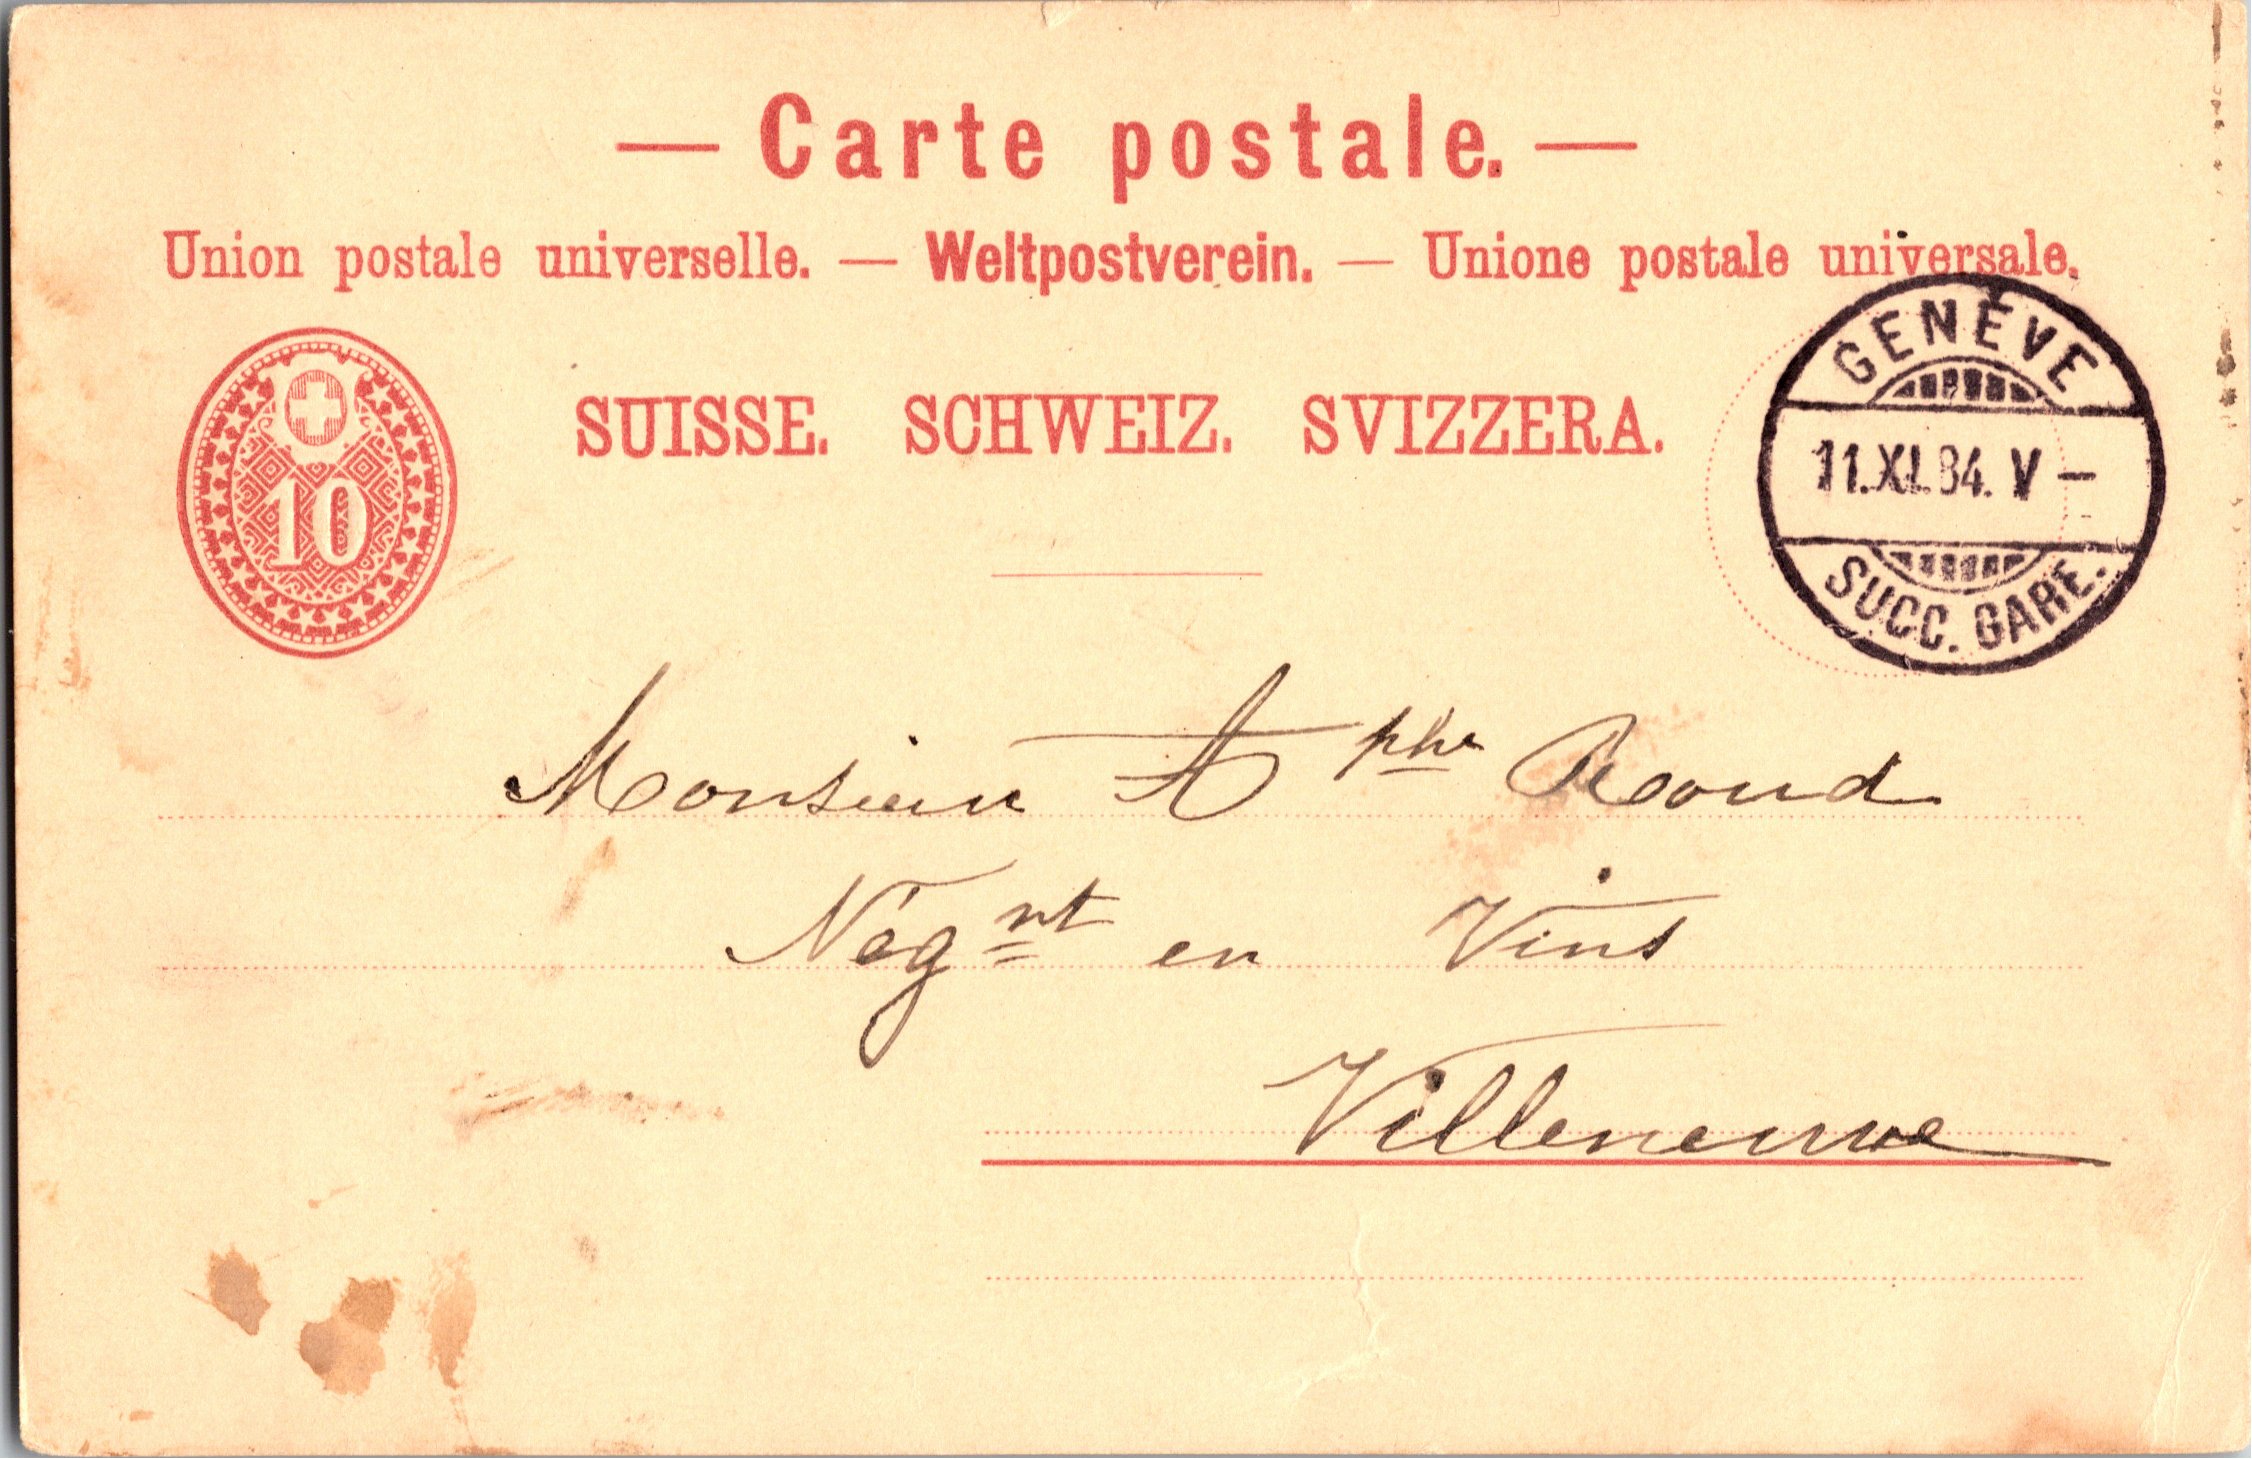 — Carte postale. —
Union postale universelle. — Weltpostverein. — Unione postale universale.
10
SUISSE. SCHWEIZ. SVIZZERA.
GENÈVE
11.XI.84. V —
SUCC. GARE.
Monsieur Aphe Roud
Négnt en Vins
Villeneuve